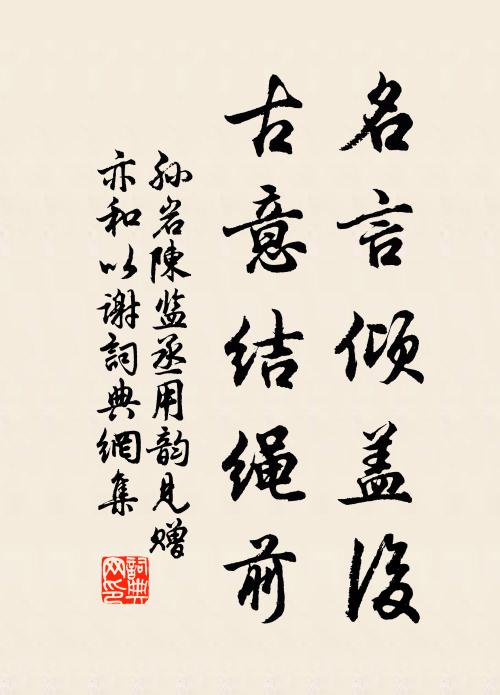 名言倾盖後
古意结绳前
孙岩陳监丞用韵见赠
亦和以谢詞典網集
詞典
网印